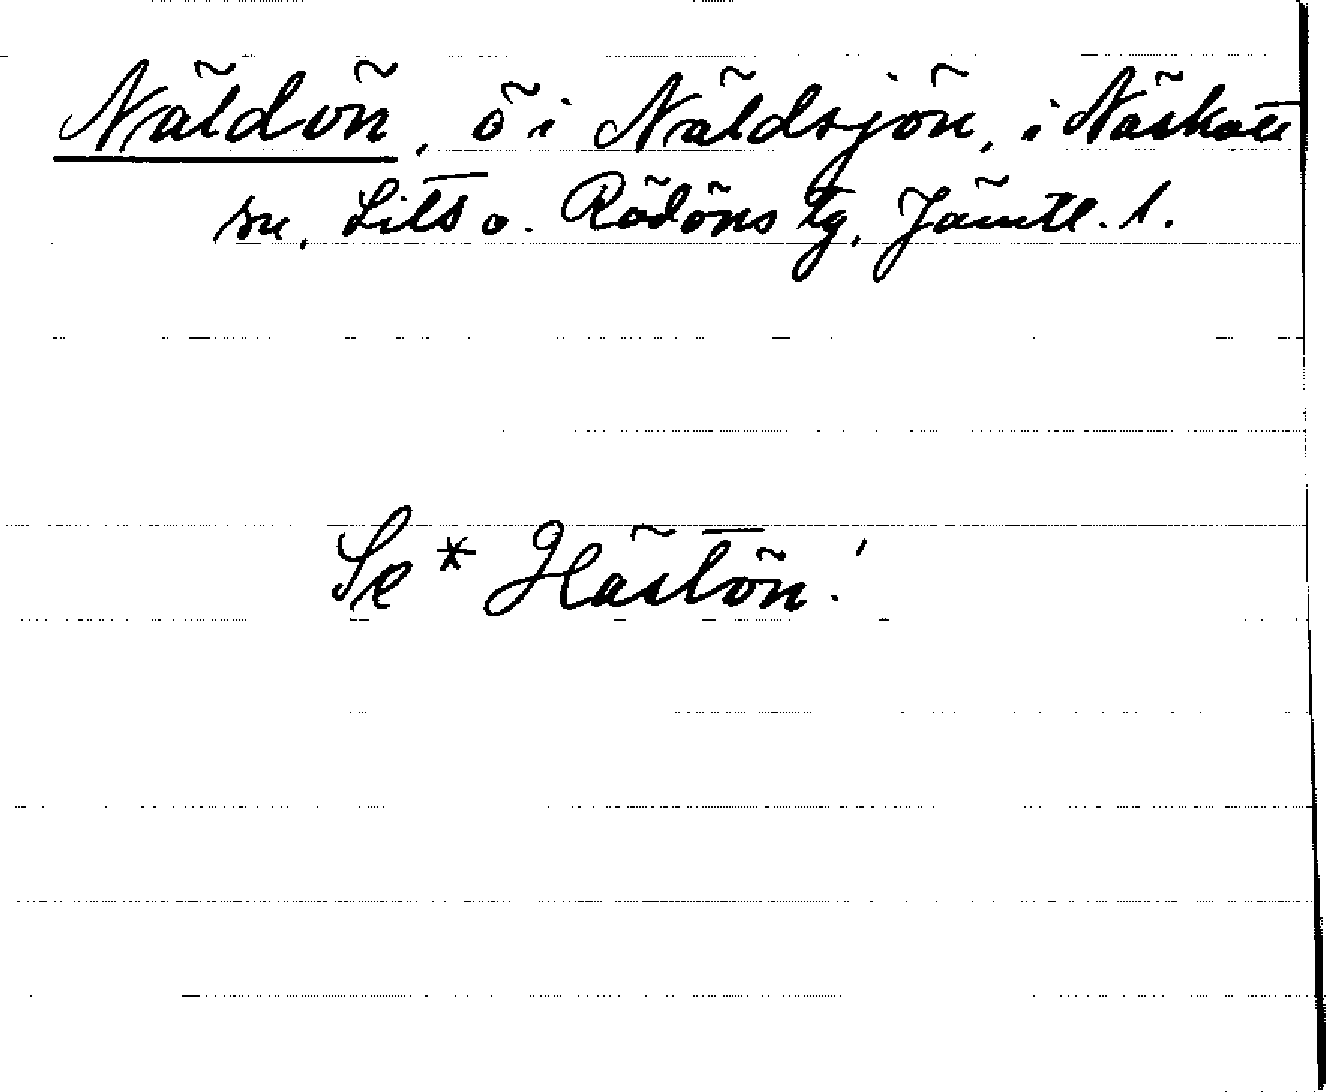 Näldön, ö i Näldsjön, i Näskott
sn, Lits o. Rödöns tg, Jämtl. l.
Se * Hästön!